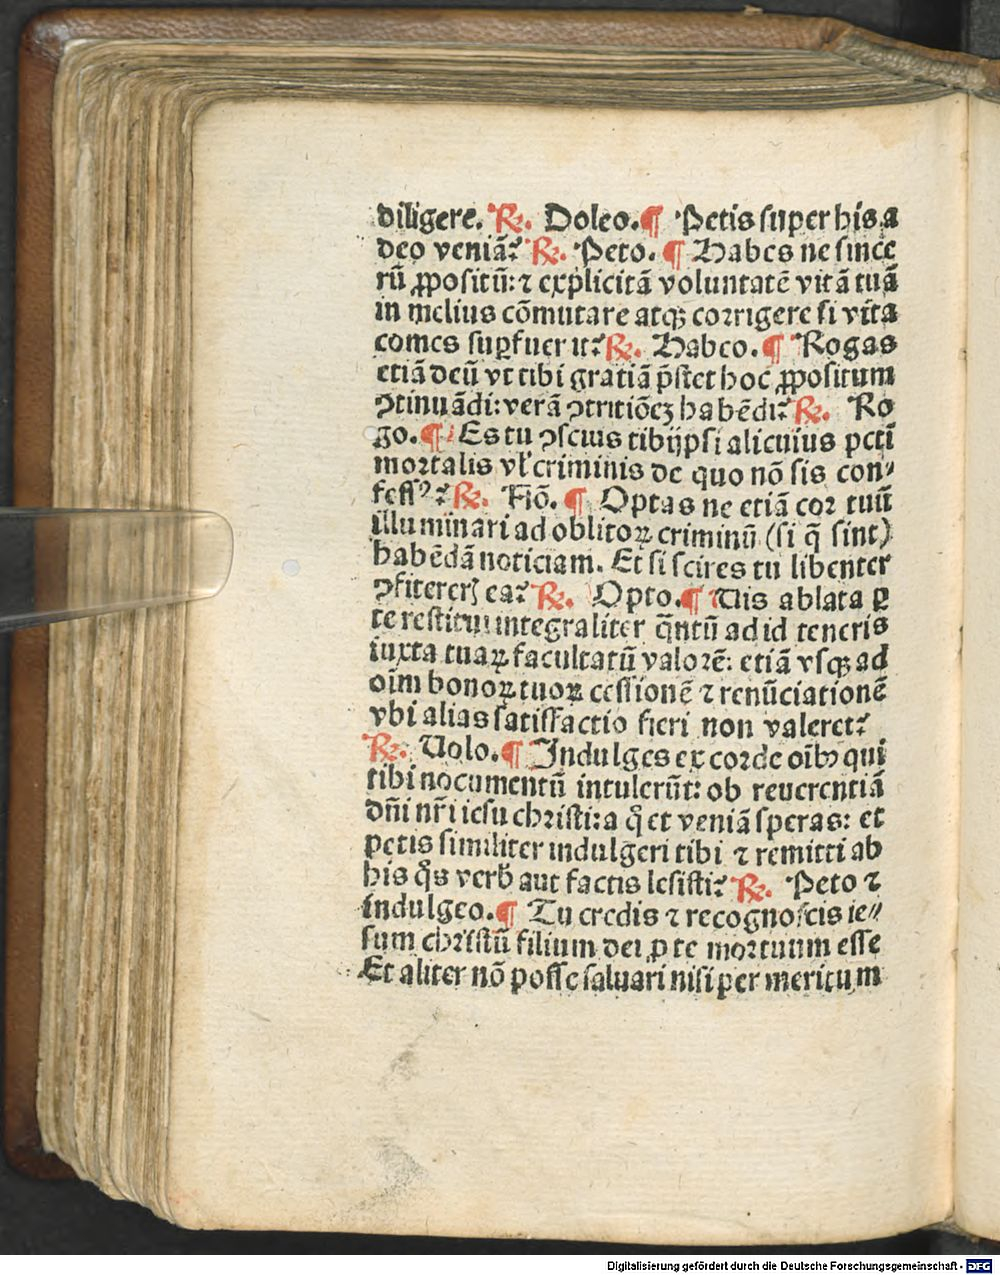 diligere. ℟. Doleo. ¶ Petis super his a
deo veniā? ℟. Peto. ¶ Habes ne since
rū ꝓpositū: ⁊ explicitā voluntatē vitā tuā
in melius cōmutare atqꝫ corrigere si vita
comes suꝑfuerit? ℟. Habeo. ¶ Rogas
etiā deū vt tibi gratiā p̄stet hoc ꝓpositum
ꝯtinuādi: verā ꝯtritiōeꝫ habēdi? ℟. Ro
go. ¶ Es tu ꝯscius tibijpsi alicuius pcti
mortalis vl' criminis de quo nō sis con⸗
fessꝰ? ℟. Nō. ¶ Optas ne etiā cor tuū
illuminari ad oblitoꝝ criminū (si q̄ sint)
habēdā noticiam. Et si scires tu libenter
ꝯfitererꝭ ea? ℟. Opto. ¶ Uis ablata ꝑ
te restitui integraliter q̄ntū ad id teneris
iuxta tuaꝝ facultatū valorē: etiā vsqꝫ ad
oīm bonoꝝ tuoꝝ cessionē ⁊ renūciationē
vbi alias satisfactio fieri non valeret?
℟. Uolo. ¶ Indulges ex corde oībꝰ qui
tibi nocumentū intulerūt: ob reuerentiā
dn̄i nr̄i iesu christi: a q̊ et veniā speras: et
petis similiter indulgeri tibi ⁊ remitti ab
his q̊s verb̄ aut factis lesisti? ℟. Peto ⁊
indulgeo. ¶ Tu credis ⁊ recognoscis ie⸗
sum christū filium dei ꝓ te mortuum esse
Et aliter nō posse saluari nisi per meritum
Digitalisierung gefördert durch die Deutsche Forschungsgemeinschaft - DFG